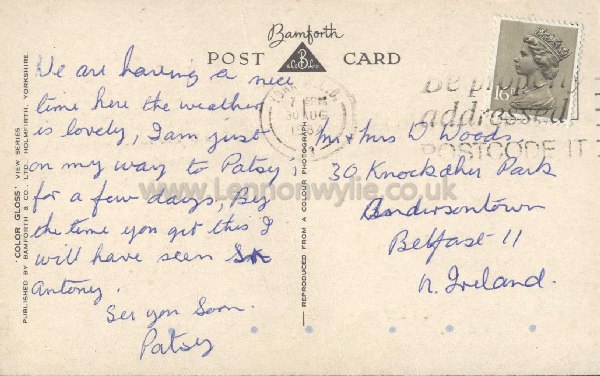 Bamforth
POST CARD
We are having a nice
time here the weather
is lovely, I am just
on my way to Patsy's
for a few days, By
the time you get this I
will have seen
Antony.
See you Soon.
Patsy
"COLOR GLOSS" VIEW SERIES
PUBLISHED BY BAMFORTH & CO. LTD. HOLMFIRTH, YORKSHIRE.
REPRODUCED FROM A COLOUR PHOTOGRAPH
7 PM
30 AUG
16
Be properly
addressed
POSTCODE IT
Mr & Mrs D Woods
30 Knockdhu Park
Andersontown
Belfast-11
N. Ireland.
www.Lennonwylie.co.uk